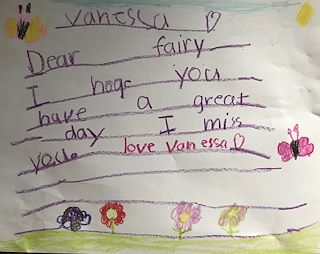 vanessa
Dear fairy
I hope you
have a great
day I miss
you. love vanessa